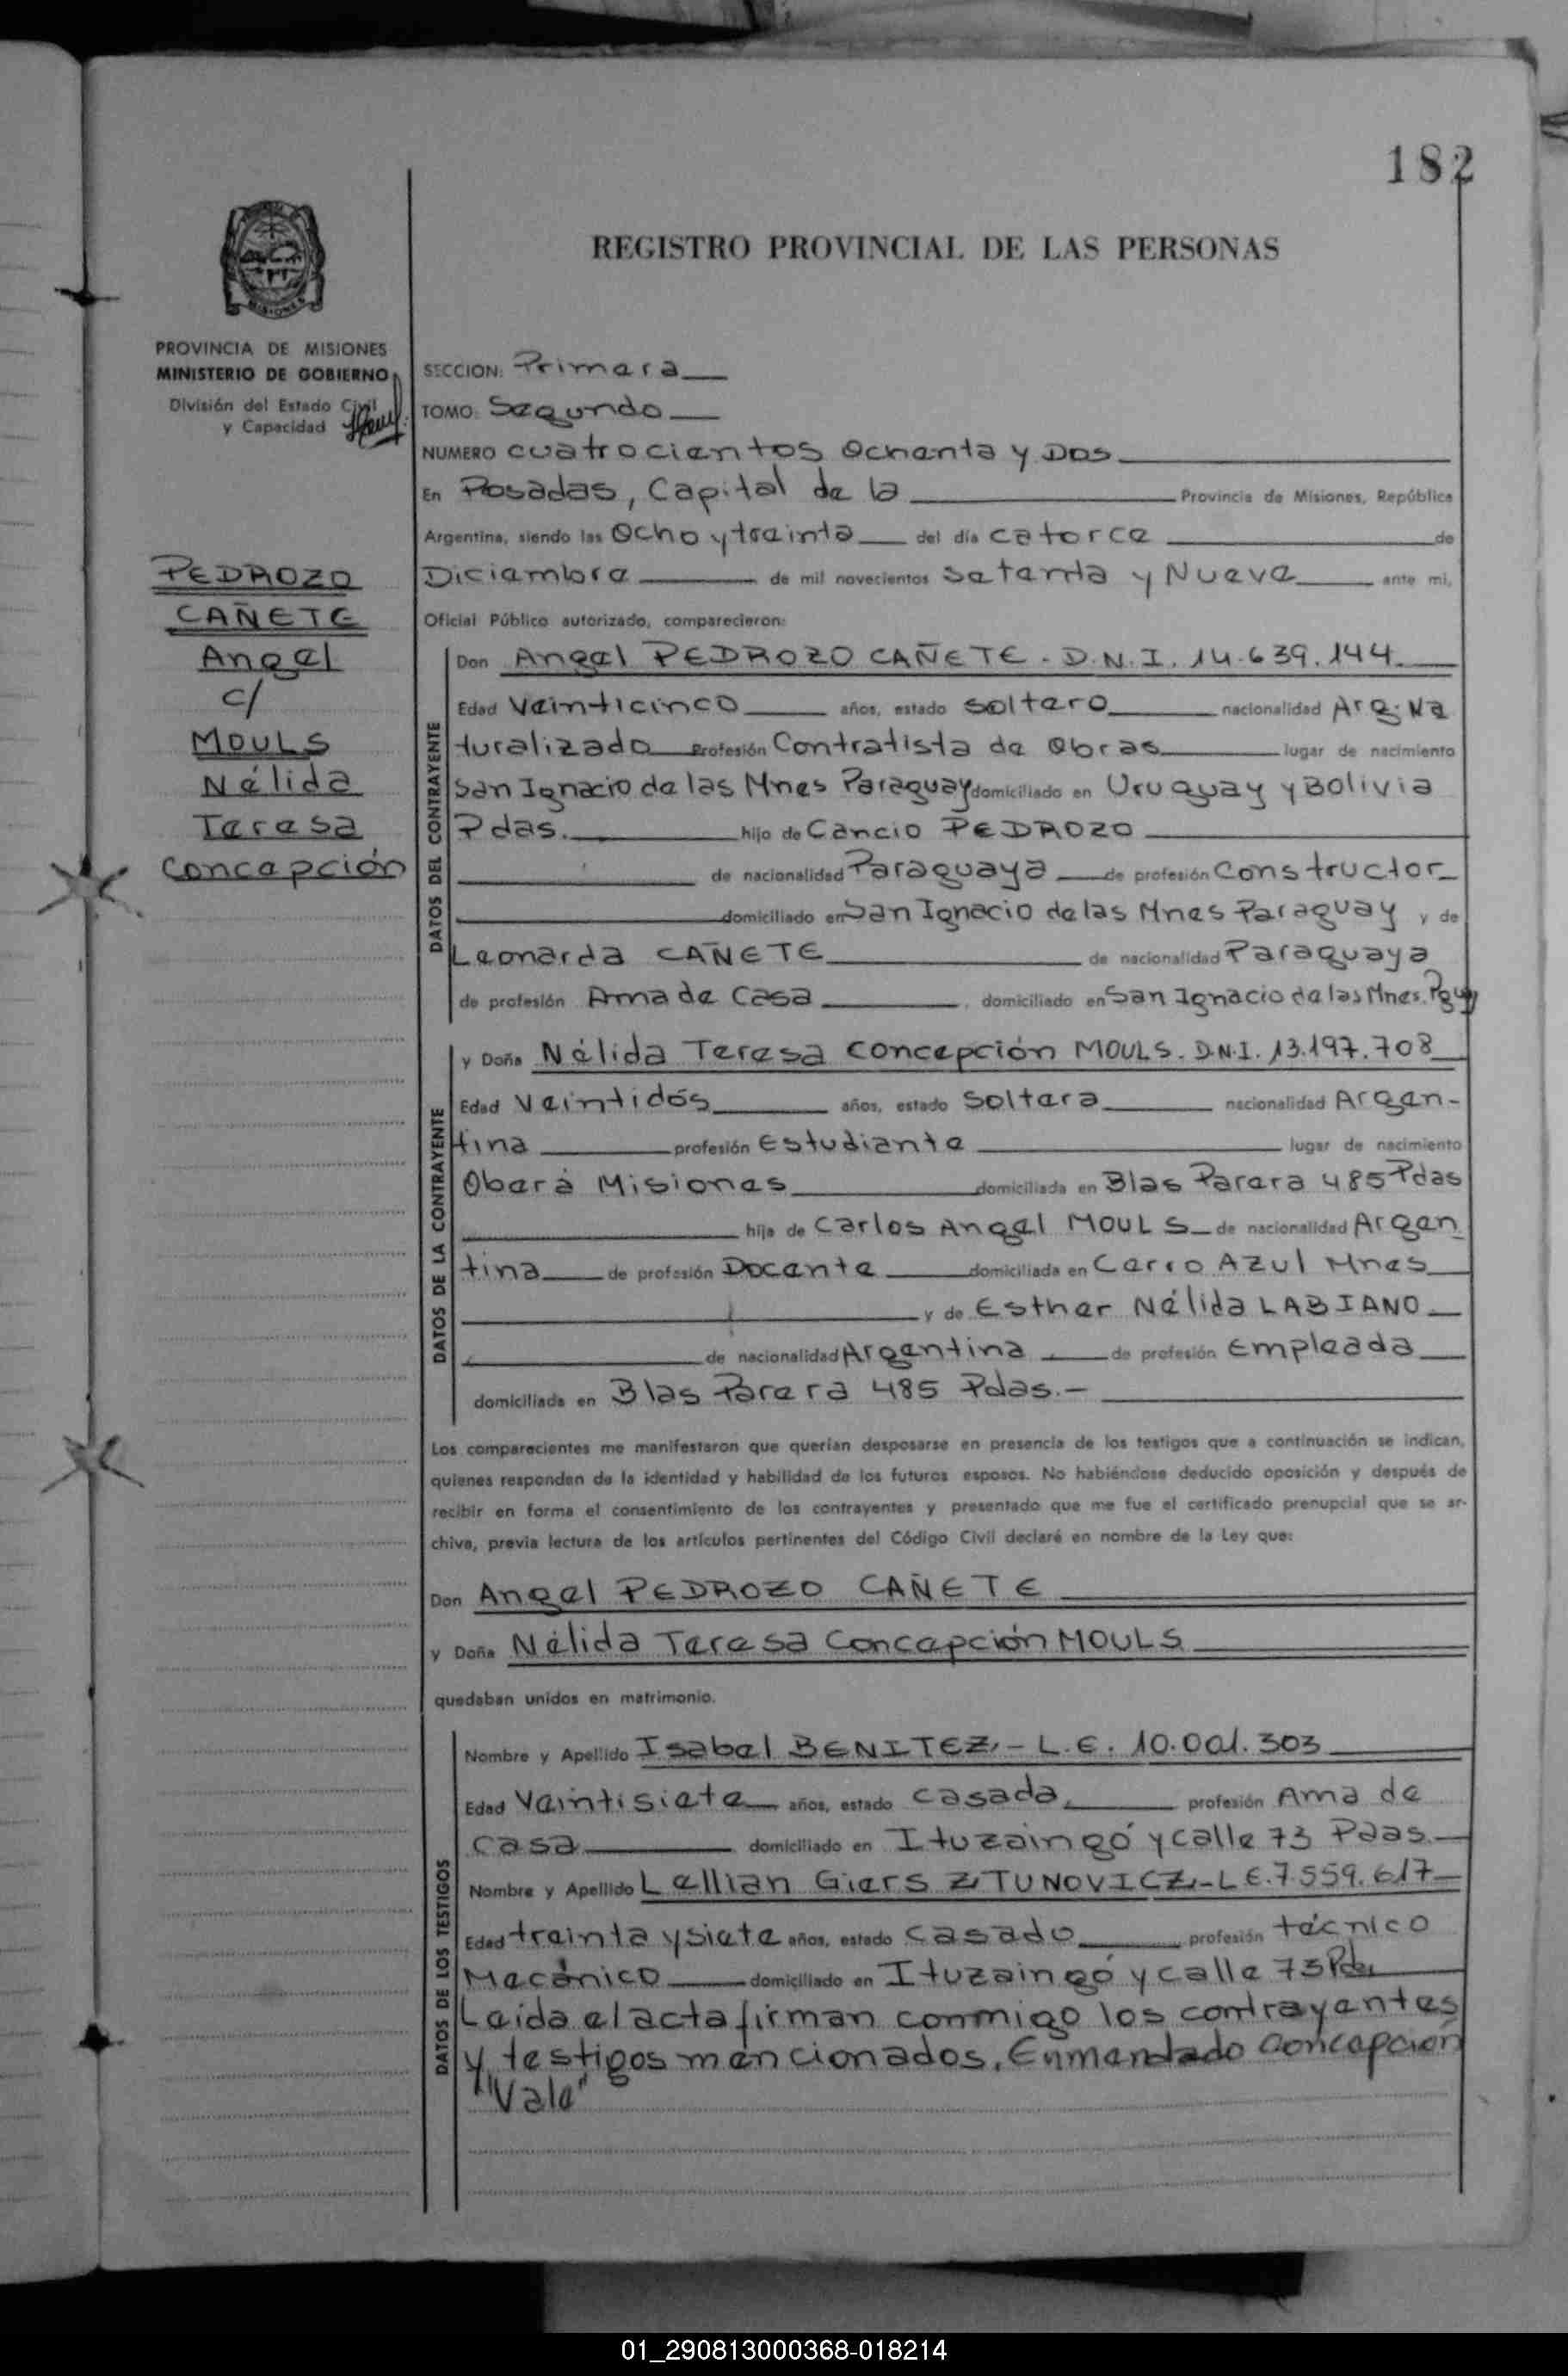 182
REGISTRO PROVINCIAL DE LAS PERSONAS
MISIONES
PROVINCIA DE MISIONES
MINISTERIO DE GOBIERNO
División del Estado Civil
y Capacidad
PEDROZO
CAÑETE
Angel
c/
MOULS
Nélida
Teresa
Concepción
SECCION: Primera
TOMO: Segundo
NUMERO cuatrocientos Ochenta y Dos
En Posadas, Capital de la Provincia de Misiones, República
Argentina, siendo las Ocho y treinta del día catorce de
Diciembre de mil novecientos Setenta y Nueve ante mi,
Oficial Público autorizado, comparecieron:
DATOS DEL CONTRAYENTE
Don Angel PEDROZO CAÑETE - D.N.I. 14.639.144
Edad Veinticinco años, estado soltero nacionalidad Arg. Na
turalizado profesión Contratista de Obras lugar de nacimiento
San Ignacio de las Mnes Paraguay domiciliado en Uruguay y Bolivia
Pdas. hijo de Cancio PEDROZO
de nacionalidad Paraguaya de profesión Constructor
domiciliado en San Ignacio de las Mnes Paraguay y de
Leonarda CAÑETE de nacionalidad Paraguaya
de profesión Ama de Casa, domiciliado en San Ignacio de las Mnes. Pguy
DATOS DE LA CONTRAYENTE
y Doña Nélida Teresa Concepción MOULS. D.N.I. 13.197.708
Edad Veintidós años, estado Soltera nacionalidad Argen-
tina profesión Estudiante lugar de nacimiento
Oberá Misiones domiciliada en Blas Parera 485 Pdas
hija de Carlos Angel MOULS de nacionalidad Argen
tina de profesión Docente domiciliada en Cerro Azul Mnes
y de Esther Nélida LABIANO
de nacionalidad Argentina de profesión Empleada
domiciliada en Blas Parera 485 Pdas.-
Los comparecientes me manifestaron que querían desposarse en presencia de los testigos que a continuación se indican,
quienes responden de la identidad y habilidad de los futuros esposos. No habiéndose deducido oposición y después de
recibir en forma el consentimiento de los contrayentes y presentado que me fue el certificado prenupcial que se ar-
chiva, previa lectura de los artículos pertinentes del Código Civil declaré en nombre de la Ley que:
Don Angel PEDROZO CAÑETE
y Doña Nélida Teresa Concepción MOULS
quedaban unidos en matrimonio.
DATOS DE LOS TESTIGOS
Nombre y Apellido Isabel BENITEZ.- L.E. 10.001.303
Edad Veintisiete años, estado casada, profesión Ama de
casa domiciliado en Ituzaingó y calle 73 Pdas.-
Nombre y Apellido Lellian Giers ZTUNOVICZ.-L E.7.559.617
Edad treinta y siete años, estado casado profesión técnico
Mecánico domiciliado en Ituzaingó y calle 73 Pdas
Leída el acta firman conmigo los contrayentes
y testigos mencionados. Enmendado Concepción
"Vale"
01_290813000368-018214